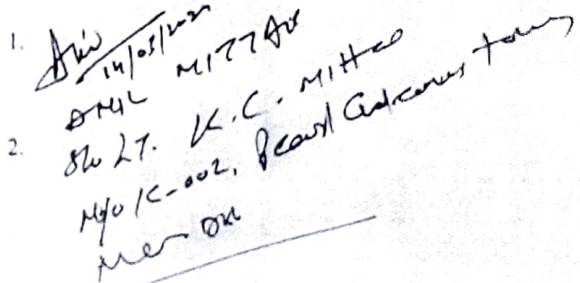 1.
14/05/202
ANIL MITTAL
2.
S/o LT. K.C. Mittal
R/o K-002, Pearl Gateway Towers